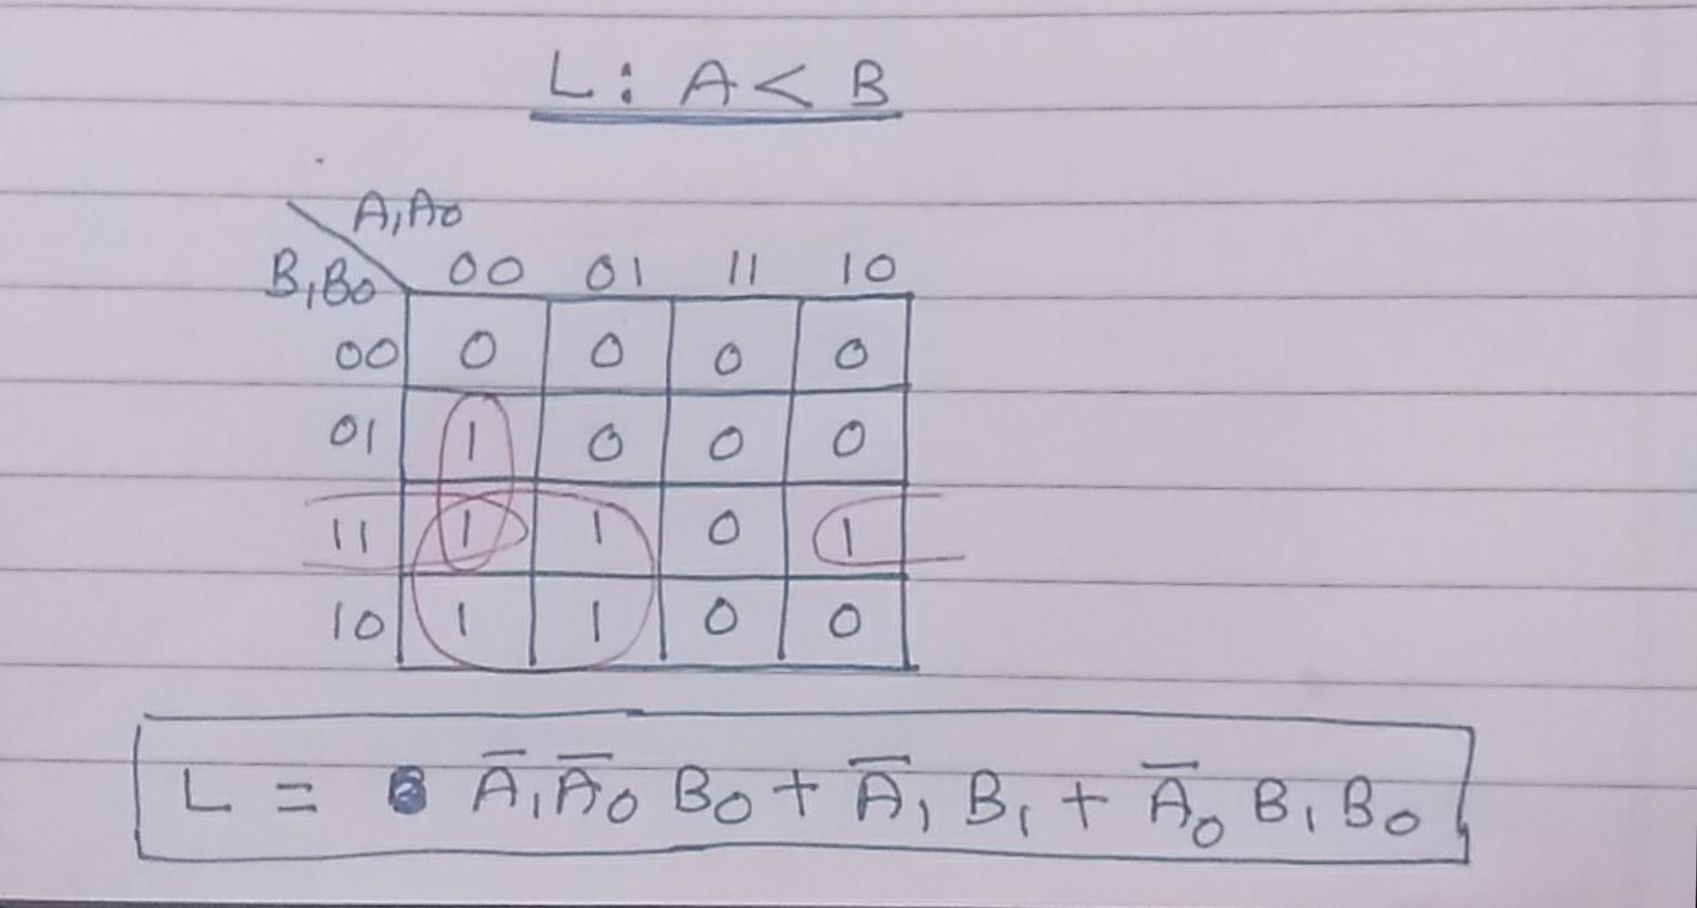 L: A < B
A₁A₀
B₁B₀ 00 01 11 10
00 0 0 0 0
01 1 0 0 0
11 1 1 0 1
10 1 1 0 0
L = A̅₁A̅₀ B₀ + A̅₁ B₁ + A̅₀ B₁ B₀